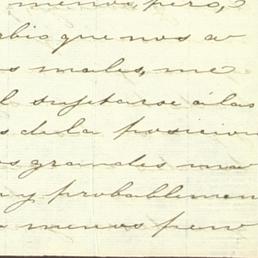 menos, pero,
que nos a
males, me
sujetarse á las
de la posicion
grandes ma
y probablemen
menos pen